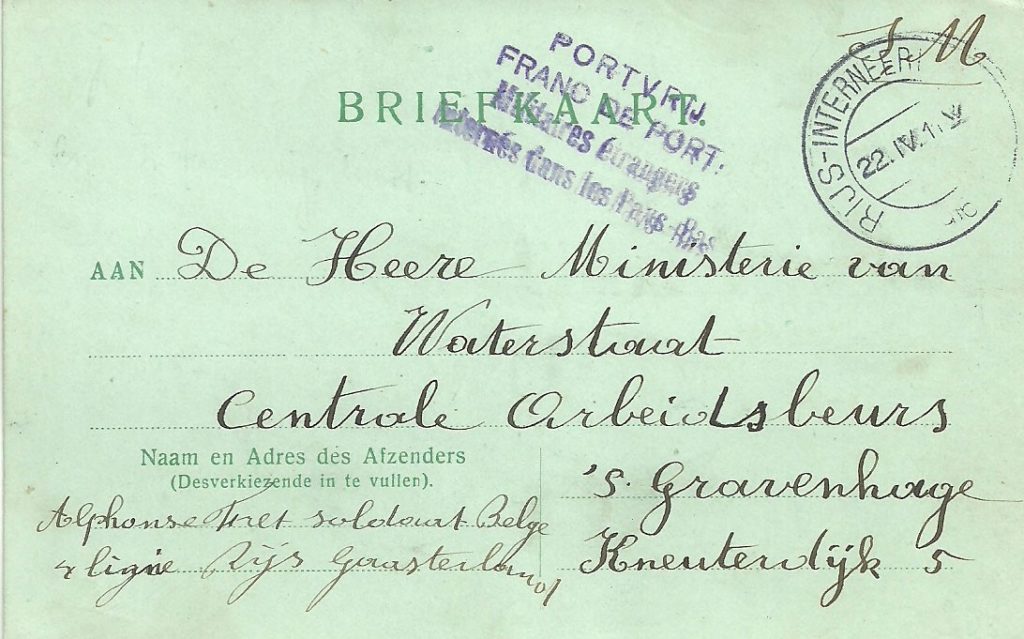 S M
PORTVRIJ
FRANC DE PORT.
Militaires étrangers
Internés dans les Pays-Bas
BRIEFKAART.
RIJS-INTERNEER
22.IV.1
AAN De Heere Ministerie van
Waterstaat
Centrale Arbeidsbeurs
's Gravenhage
Kneuterdijk 5
Naam en Adres des Afzenders
(Desverkiezende in te vullen).
Alphonse soldaat Belge
4 ligne Rijs Gaasterland